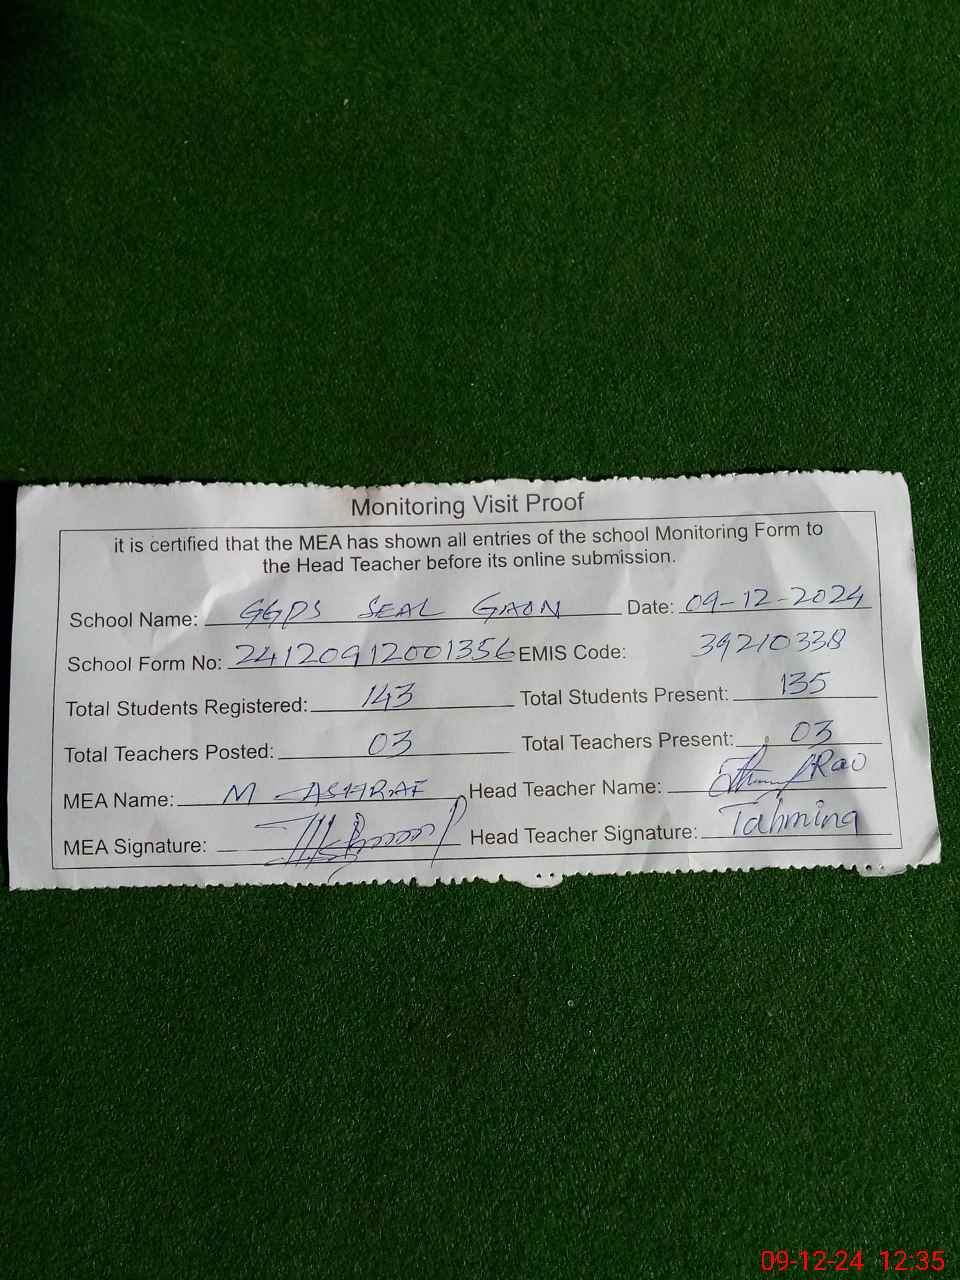 Monitoring Visit Proof
it is certified that the MEA has shown all entries of the school Monitoring Form to
the Head Teacher before its online submission.
School Name: GGPS SEAL GAON Date: 09-12-2024
School Form No: 24120912001356 EMIS Code: 39210338
Total Students Registered: 143 Total Students Present: 135
Total Teachers Posted: 03 Total Teachers Present: 03
MEA Name: M ASHRAF Head Teacher Name: Rao
MEA Signature: Head Teacher Signature: Tahmina
09-12-24 12:35